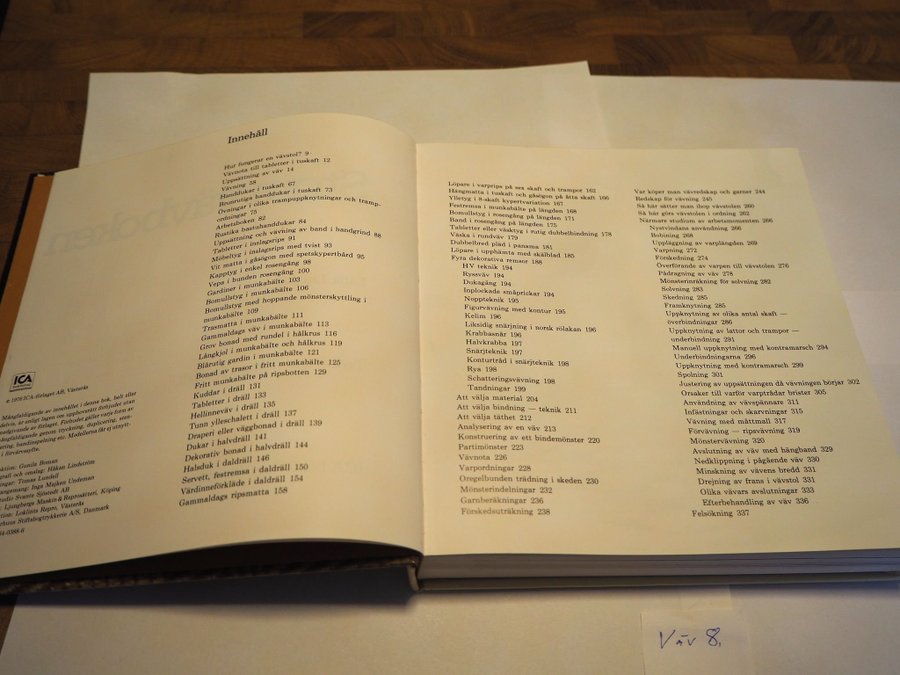 Innehåll
Hur fungerar en vävstol? 9
Vävnota till tabletter i tuskaft 12
Uppsättning av väv 14
Vävning 58
Handdukar i tuskaft 67
Brunrutiga handdukar i tuskaft 73
Övningar i olika trampuppknytningar och tramp-
ordningar 75
Arbetsboken 82
Rustika bastuhanddukar 84
Uppsättning och vävning av band i bandgrind 88
Tabletter i inslagsrips 91
Möbeltyg i inslagsrips med tvist 93
Vit matta i gåsögon med spetskypertbård 95
Kapptyg i enkel rosengång 98
Vepa i bunden rosengång 100
Gardiner i munkabälte 103
Bomullstyg i munkabälte 106
Bomullstyg med hoppande mönsterskyttling i
munkabälte 109
Trasmatta i munkabälte 111
Gammaldags väv i munkabälte 113
Grov bonad med rundel i hålkrus 116
Långkjol i munkabälte och hålkrus 119
Blårutig gardin i munkabälte 121
Bonad av trasor i fritt munkabälte 125
Fritt munkabälte på ripsbotten 129
Kuddar i dräll 131
Tabletter i dräll 133
Hellinneväv i dräll 135
Tunn ylleschalett i dräll 137
Draperi eller väggbonad i dräll 139
Dukar i halvdräll 141
Dekorativ bonad i halvdräll 144
Halsduk i daldräll 146
Servett, festremsa i daldräll 150
Värdinneförkläde i daldräll 154
Gammaldags ripsmatta 158
ICA
© 1978 ICA-förlaget AB, Västerås
Mångfaldigande av innehållet i denna bok, helt eller
delvis, är enligt lagen om upphovsrätt förbjudet utan
medgivande av förlaget. Förbudet gäller varje form av
mångfaldigande genom tryckning, duplicering, sten-
cilering, bandinspelning etc. Modellerna får ej utnytt-
jas i förvärvssyfte.
Gunila Boman
omslag: Håkan Lindström
Tomas Lundell
Inga Majken Undeman
Studio Svante Sjöstedt AB
Ljungbergs Maskin & Reprosätteri, Köping
Loklists Repro, Västerås
Stiftsbogtrykkerie A/S, Danmark
Löpare i varprips på sex skaft och trampor 162
Hängmatta i tuskaft och gåsögon på åtta skaft 166
Ylletyg i 8-skaft kypertvariation 167
Festremsa i munkabälte på längden 168
Bomullstyg i rosengång på längden 171
Band i rosengång på längden 175
Tabletter eller väsktyg i rutig dubbelbindning 178
Väska i rundväv 179
Dubbelbred pläd i panama 185
Löpare i upphämta med skälblad 185
Fyra dekorativa remsor 188
HV teknik 194
Ryssväv 194
Dukagång 194
Inplockade småprickar 194
Noppteknik 195
Figurvävning med kontur 195
Kelim 196
Liksidig snärjning i norsk rölakan 196
Krabbasnår 196
Halvkrabba 197
Snärjteknik 197
Konturtråd i snärjteknik 198
Rya 198
Schatteringsvävning 198
Tandningar 199
Att välja material 204
Att välja bindning — teknik 211
Att välja täthet 212
Analysering av en väv 213
Konstruering av ett bindemönster 220
Partimönster 223
Vävnota 226
Varpordningar 228
Oregelbunden trädning i skeden 230
Mönsterindelningar 232
Garnberäkningar 236
Förskedsuträkning 238
Var köper man vävredskap och garner 244
Redskap för vävning 245
Så här sätter man ihop vävstolen 260
Så här görs vävstolen i ordning 262
Närmare studium av arbetsmomenten 266
Nystvindans användning 266
Bobining 268
Uppläggning av varplängden 269
Varpning 272
Förskedning 274
Överförande av varpen till vävstolen 276
Pådragning av väv 278
Mönsterinräkning för solvning 282
Solvning 283
Skedning 285
Framknytning 285
Uppknytning av olika antal skaft —
överbindningar 286
Uppknytning av lattor och trampor —
underbindning 291
Manuell uppknytning med kontramarsch 294
Underbindningarna 296
Uppknytning med kontramarsch 299
Spolning 301
Justering av uppsättningen då vävningen börjar 302
Orsaker till varför varptrådar brister 305
Användning av vävspännare 311
Infästningar och skarvningar 315
Vävning med måttmall 317
Förvävning — ripsvävning 319
Mönstervävning 320
Avslutning av väv med hängband 329
Nedklippning i pågående väv 330
Minskning av vävens bredd 331
Drejning av frans i vävstol 331
Olika vävars avslutningar 333
Efterbehandling av väv 336
Felsökning 337
Väv 8.